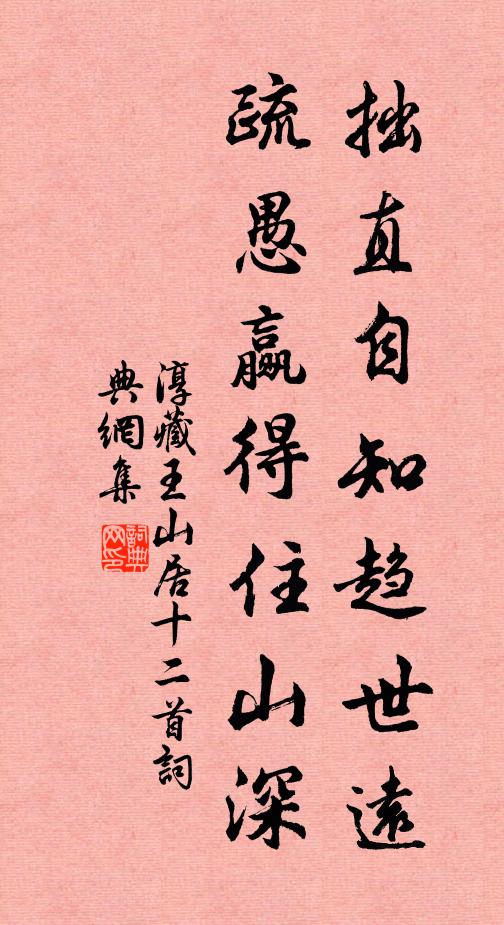 拙直自知趋世遠
疏愚贏得住山深
淳藏王山居十二首詞
典網集
詞典
网印